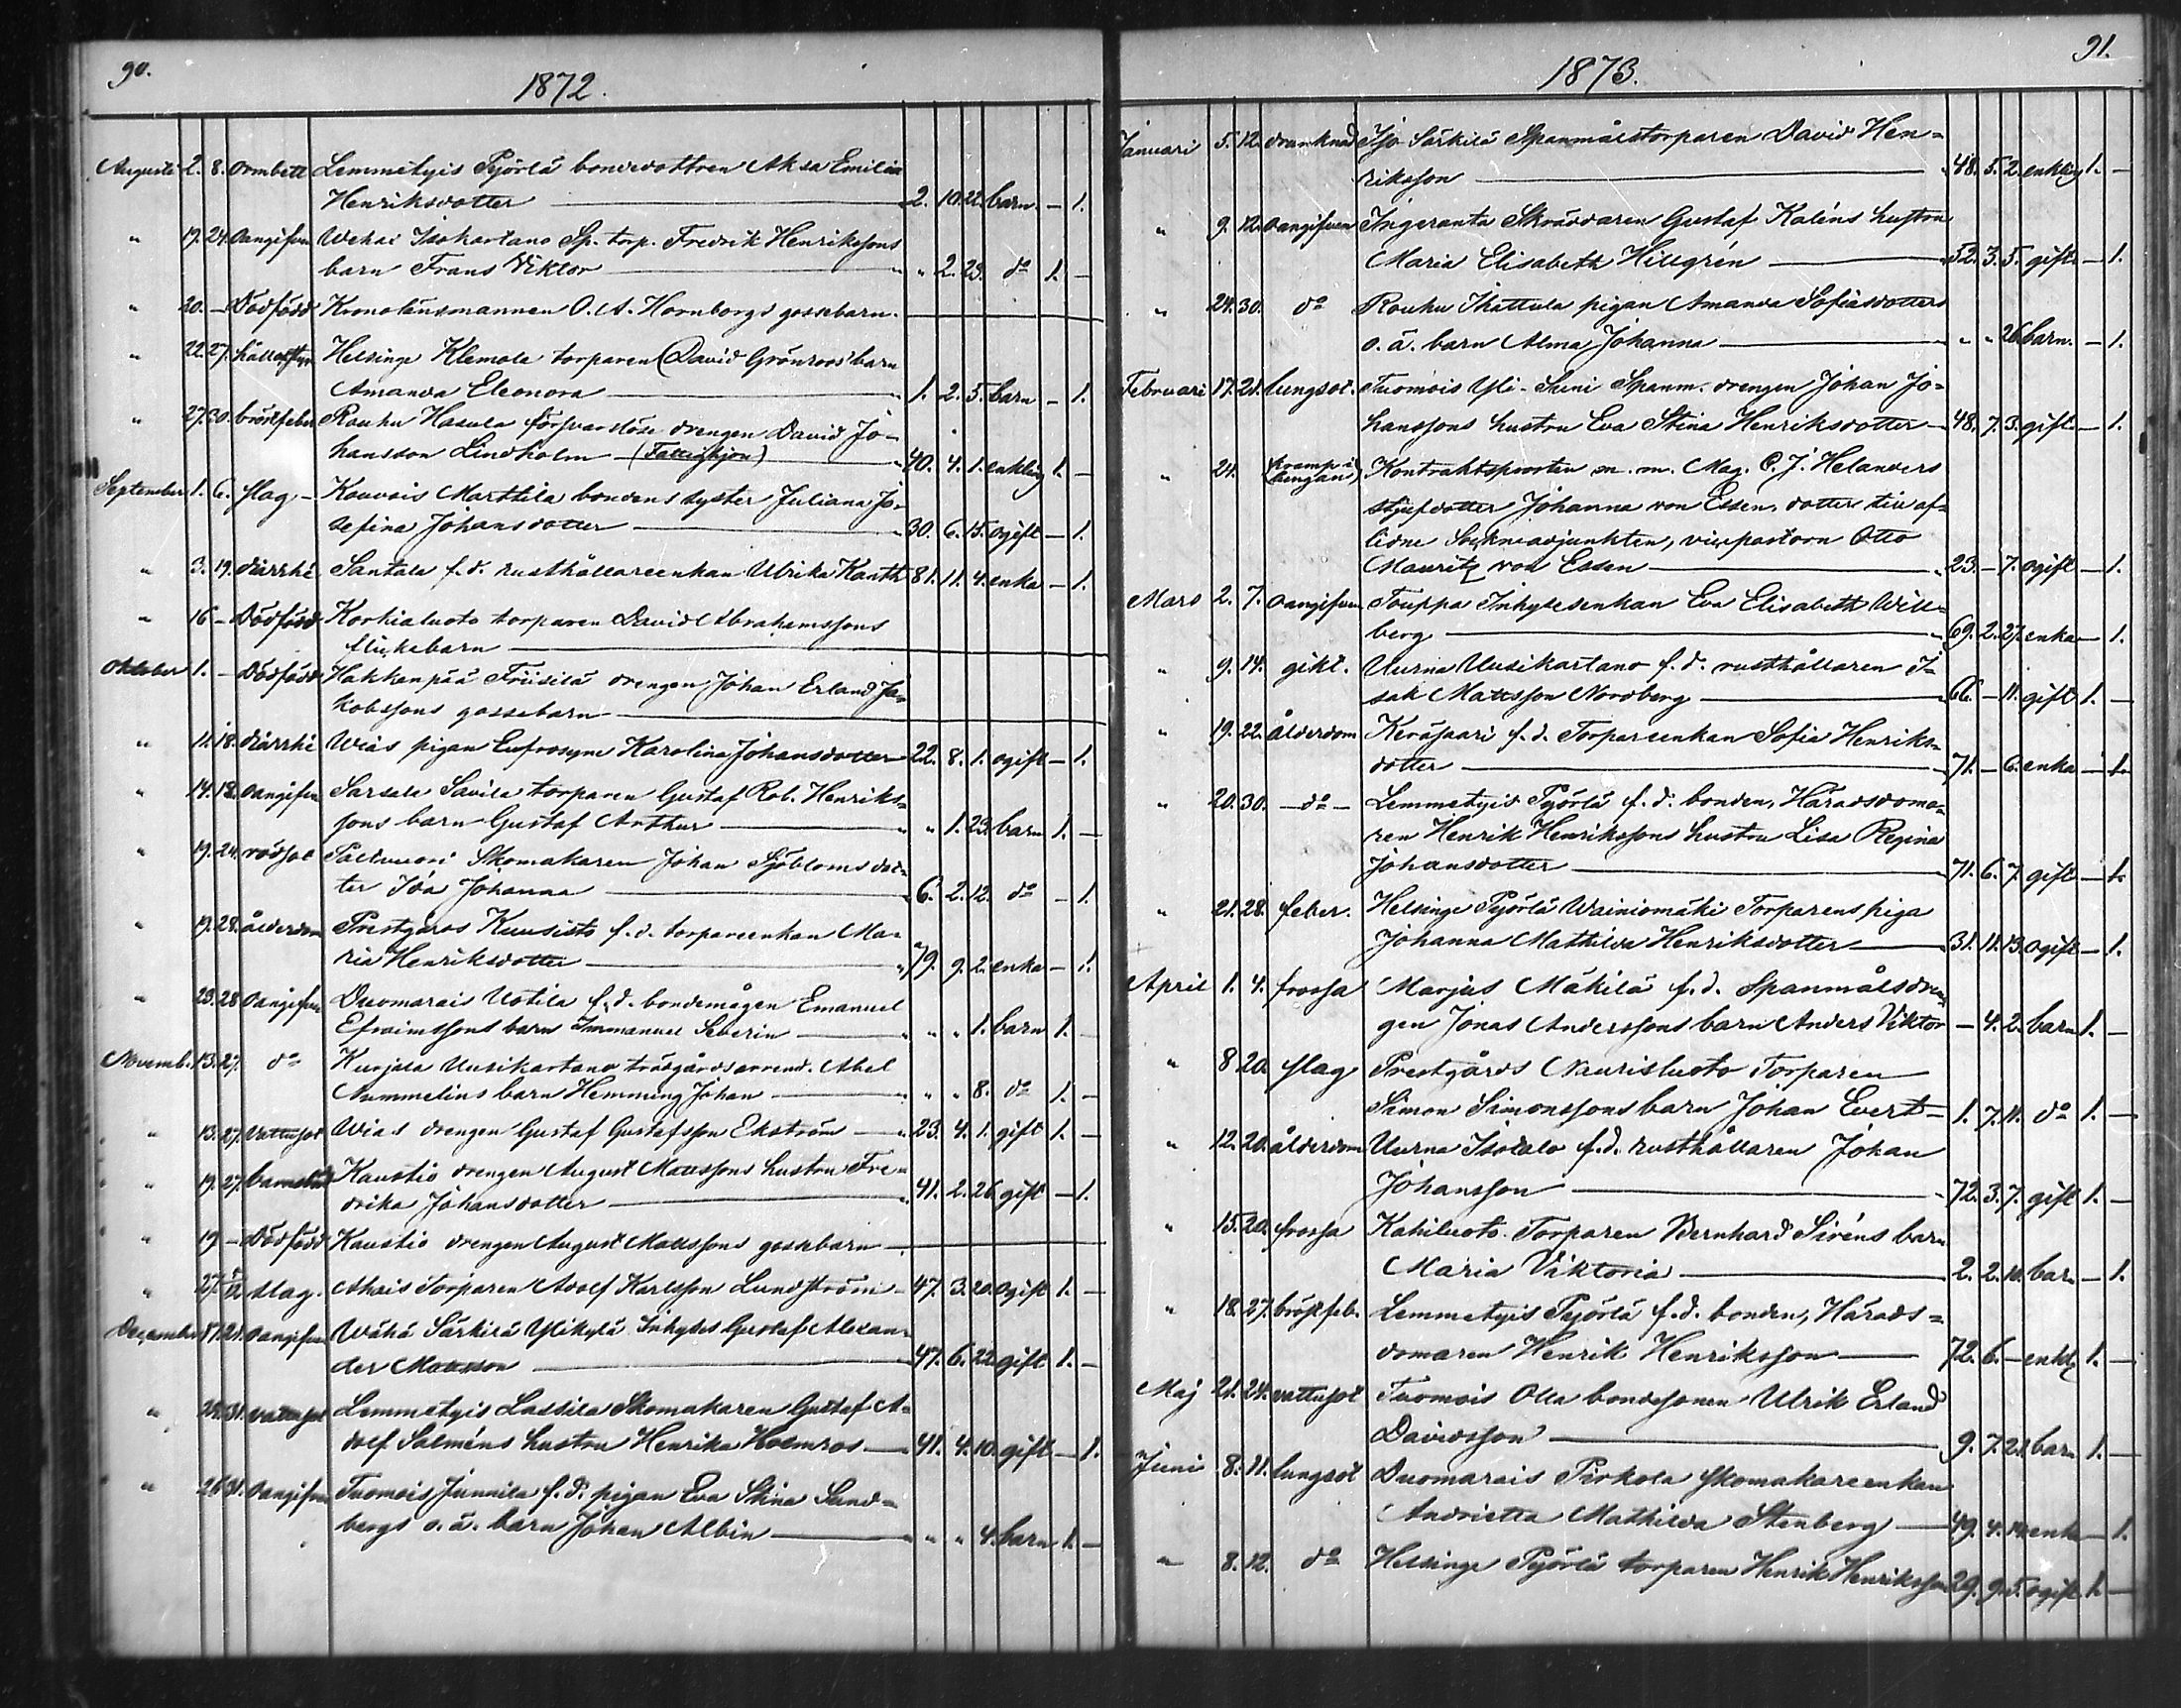 90.
1872.
Augusti 2. 8. Ormbett Lemmetyis Pyörlä bondedottren Aksa Emilia
Henriksdotter 2. 10. 22. barn. – 1.
" 19. 24. Oangifven Wehai Isokartano Sp. torp. Fredrik Henrikssons
barn Frans Viktor " 2. 23. do 1. –
" 20. – Dödfödd Kronolänsmannen O. A. Hornborgs gossebarn.
" 22. 27. Helsinge Klemola torparen David Grönroos' barn
Amanda Eleonora 1. 2. 5. barn – 1.
" 27. 30. bröstfeber Rouhu Hasula försvarslöse drengen David Jo-
hansson Lindholm (Fattighjon) 40. 4. 1. enkling 1. –
September 1. 6. slag – Kouvois Marttila bondens syster Juliana Jo-
sefina Johansdotter 30. 6. 15. ogift – 1.
" 3. 19. diarrhé Santala f. d. rusthållareenkan Ulrika Kanth 81. 11. 4. enka – 1.
" 16 – Dödfödd Korkialuoto torparen David Abrahamssons
flickebarn
Oktober 1. – Dödfödd Hakkenpää Friisilä drengen Johan Erland Ja-
kobssons gossebarn
" 11. 18. diarrhé Wiás pigan Eufrosyne Karolina Johansdotter 22. 8. 1. ogift – 1.
" 14. 18. oangifven Sarsala Savila torparen Gustaf Rob. Henriks-
sons barn Gustaf Arthur " 1. 23. barn 1. –
" 19. 24. rödsot Palluuori Skomakaren Johan Sjöbloms dot-
ter Ida Johanna 6. 2. 12. do – 1.
" 19. 28. ålderdom Prestgårds Kuusisto f. d. torpareenkan Ma-
ria Henriksdotter 79. 9. 2. enka – 1.
" 23. 28 Oangifven Duomarais Uotila f. d. bondemågen Emanuel
Efraimssons barn Immanuel Severin " " 1. barn 1. –
Novemb. 13. 27. do Kurjala Uusikartano trädgårdsarrend. Abel
Nummelins barn Hemming Johan " " 8. do 1. –
" 13. 27. Vattusot Wias drengen Gustaf Gustafsson Ekström 23. 4. 1. gift 1. –
" 19. 27. barnsbörd Kaustio drengen August Mattssons hustru Fre-
drika Johansdotter 41. 2. 26. gift – 1.
" 19 – Dödfödd Kaustio drengen August Mattssons gossebarn
" 27. slag. Ahais Torparen Adolf Karlsson Lundström 47. 3. 20. Ogift 1. –
December 17. 21. Oangifven Wähä Särkilä Ylikylä Inhyses Gustaf Alexan-
der Mattsson 47. 6. 22. gift 1. –
" 24. 31. vattusot Lemmetyis Lassila Skomakaren Gustaf A-
dolf Salméns hustru Henrika Holmros 41. 4. 10. gift – 1.
" 26. 31. Oangifven Tuomois Junnila f. d. pigan Eva Stina Sand-
bergs o. ä. barn Johan Albin " " 4. barn 1. –
91.
1873.
Januari 5. 12. drunknad Iso Särkilä Spanmålstorparen David Hen-
riksson 48. 5. 2. enkling 1. –
" 9. 12. oangifven Ingeranta Skräddaren Gustaf Kaléns hustru
Maria Elisabeth Hillgrén 52. 3. 5. gift – 1.
" 24. 30. do Rouhu Ihattula pigan Amanda Sofiasdotters
o. ä. barn Alma Johanna " " 26. barn. – 1.
Februari 17. 21. lungsot. Tuomois Yli-Suni Spanm. drengen Johan Jo-
hanssons hustru Eva Stina Henriksdotter 48. 7. 3. gift – 1.
" 24. (kramp i lungan) Kontraktsprosten m. m. Mag. C. J. Helanders
styfdotter Johanna von Essen, dotter till af-
lidne Sockneadjunkten, vicepastorn Otto
Mauritz von Essen 23. – 7. ogift – 1.
Mars 2. 7. oangifven Touppa Inhysesenkan Eva Elisabeth Will-
berg 69. 2. 27. enka – 1.
" 9. 14. gikt. Uurna Uusikartano f. d. rusthållaren I-
sak Mattsson Nordberg 66. – 11. gift 1. –
" 19. 22. ålderdom Keräsaari f. d. Torpareenkan Sofia Henriks-
dotter 71. – 6. enka – 1.
" 20. 30. – do – Lemmetyis Pyörlä f. d. bonden, Häradsdoma-
ren Henrik Henrikssons hustru Lisa Regina
Johansdotter 71. 6. 7. gift – 1.
" 21. 28. feber. Helsinge Pyörlä Wainiomäki Torparens piga
Johanna Mathilda Henriksdotter 31. 11. 13. ogift – 1.
April 1. 4. frossa Marjus Mäkilä f. d. Spanmålsdren-
gen Jonas Anderssons barn Anders Viktor – 4. 2. barn 1. –
" 8. 20. slag Prestgårds Naurisluoto Torparen
Simon Simonssons barn Johan Evert 1. 7. 11. do 1. –
" 12. 20. ålderdom Uurna Isotalo f. d. rusthållaren Johan
Johansson 72. 3. 7. gift 1. –
" 15. 20. frossa Kahiluoto Torparen Bernhard Siréns barn
Maria Viktoria 2. 2. 10. barn – 1.
" 18. 27. bröstfeb. Lemmetyis Pyörlä f. d. bonden, Härads-
domaren Henrik Henriksson 72. 6. – enkl. 1. –
Maj 21. 24. vattusot Tuomois Olla bondesonen Ulrik Erland
Davidsson 9. 7. 21. barn 1. –
Juni 8. 11. lungsot Duomarais Pirkola Skomakareenkan
Andrietta Mathilda Stenberg 49. 4. 14. enka – 1.
" 8. 12. do Helsinge Pyörlä torparen Henrik Henriksson 29. 9. 5. ogift 1. –